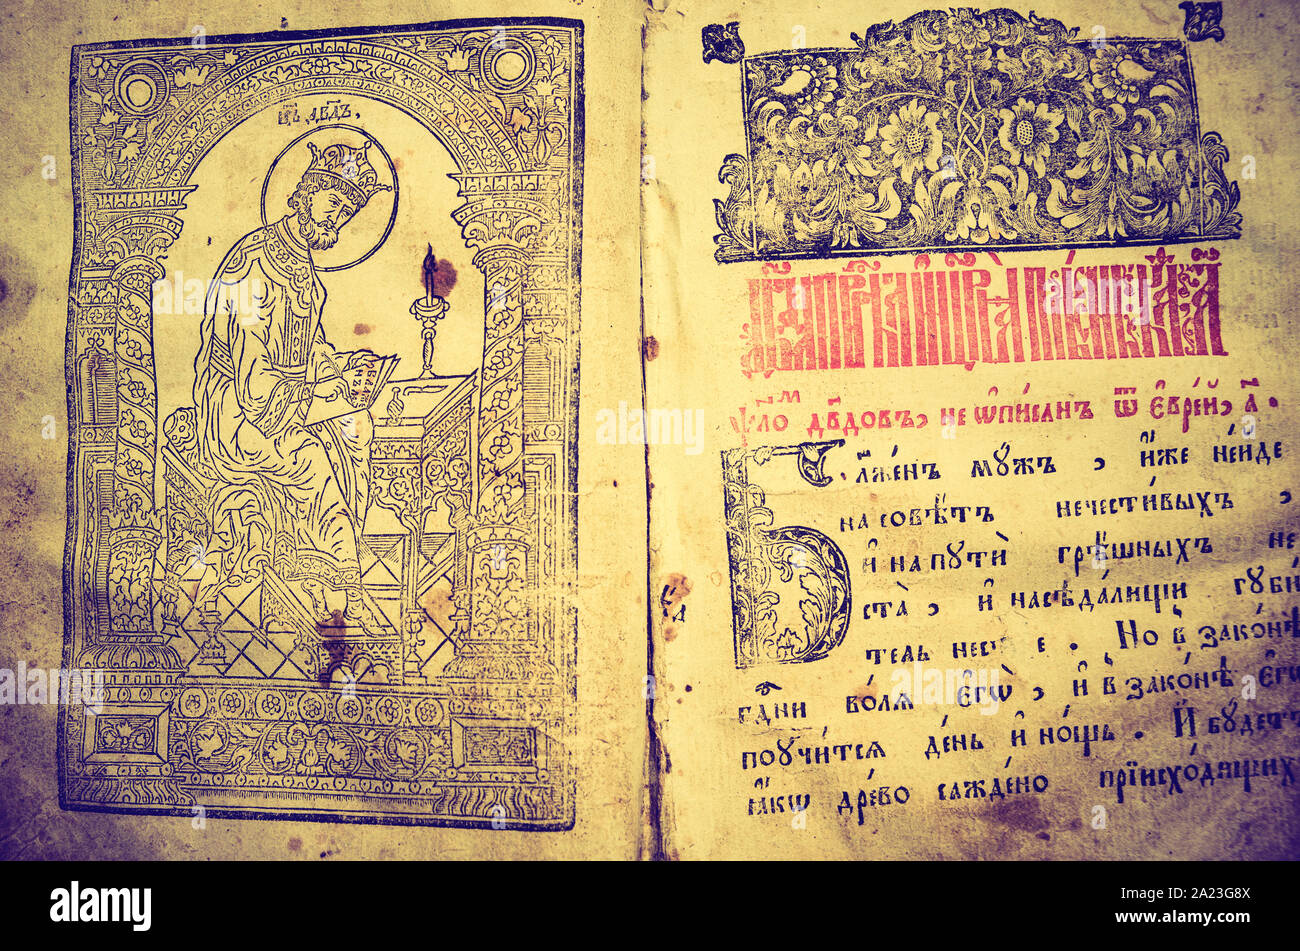 цр҃ь дв҃дъ,
Дв҃да прⷪ҇рка и цр҃ѧ пѣснь
ѱало́мъ дв҃довъ, не ѡ҆пи́санъ ѿ є҆врє́й, а҃.
Бл҃же́нъ му́жъ, и҆́же не и҆́де
на совѣ́тъ нечести́выхъ,
и҆ на пути̑ грѣ́шныхъ не
ста̀, и҆ на сѣда́лищи губи́
тель не сѣ́де. Но в̾ зако́нѣ
гд҃ни во́лѧ є҆гѡ̀, и҆ в̾ зако́нѣ є҆гѡ̀
поучи́тсѧ де́нь и҆ но́щь. И҆ бу́детъ
ꙗ҆́кѡ дре́во саждено̀ при и҆схо́дищихъ
alamy
Image ID: 2A23G8X
www.alamy.com